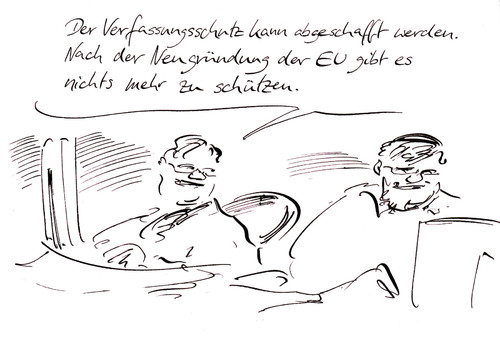 Der Verfassungsschutz kann abgeschafft werden.
Nach der Neugründung der EU gibt es
nichts mehr zu schützen.